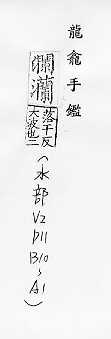 龍龕手鑑
落干反
大波也二
(水部 V2 P11 B10、A1)